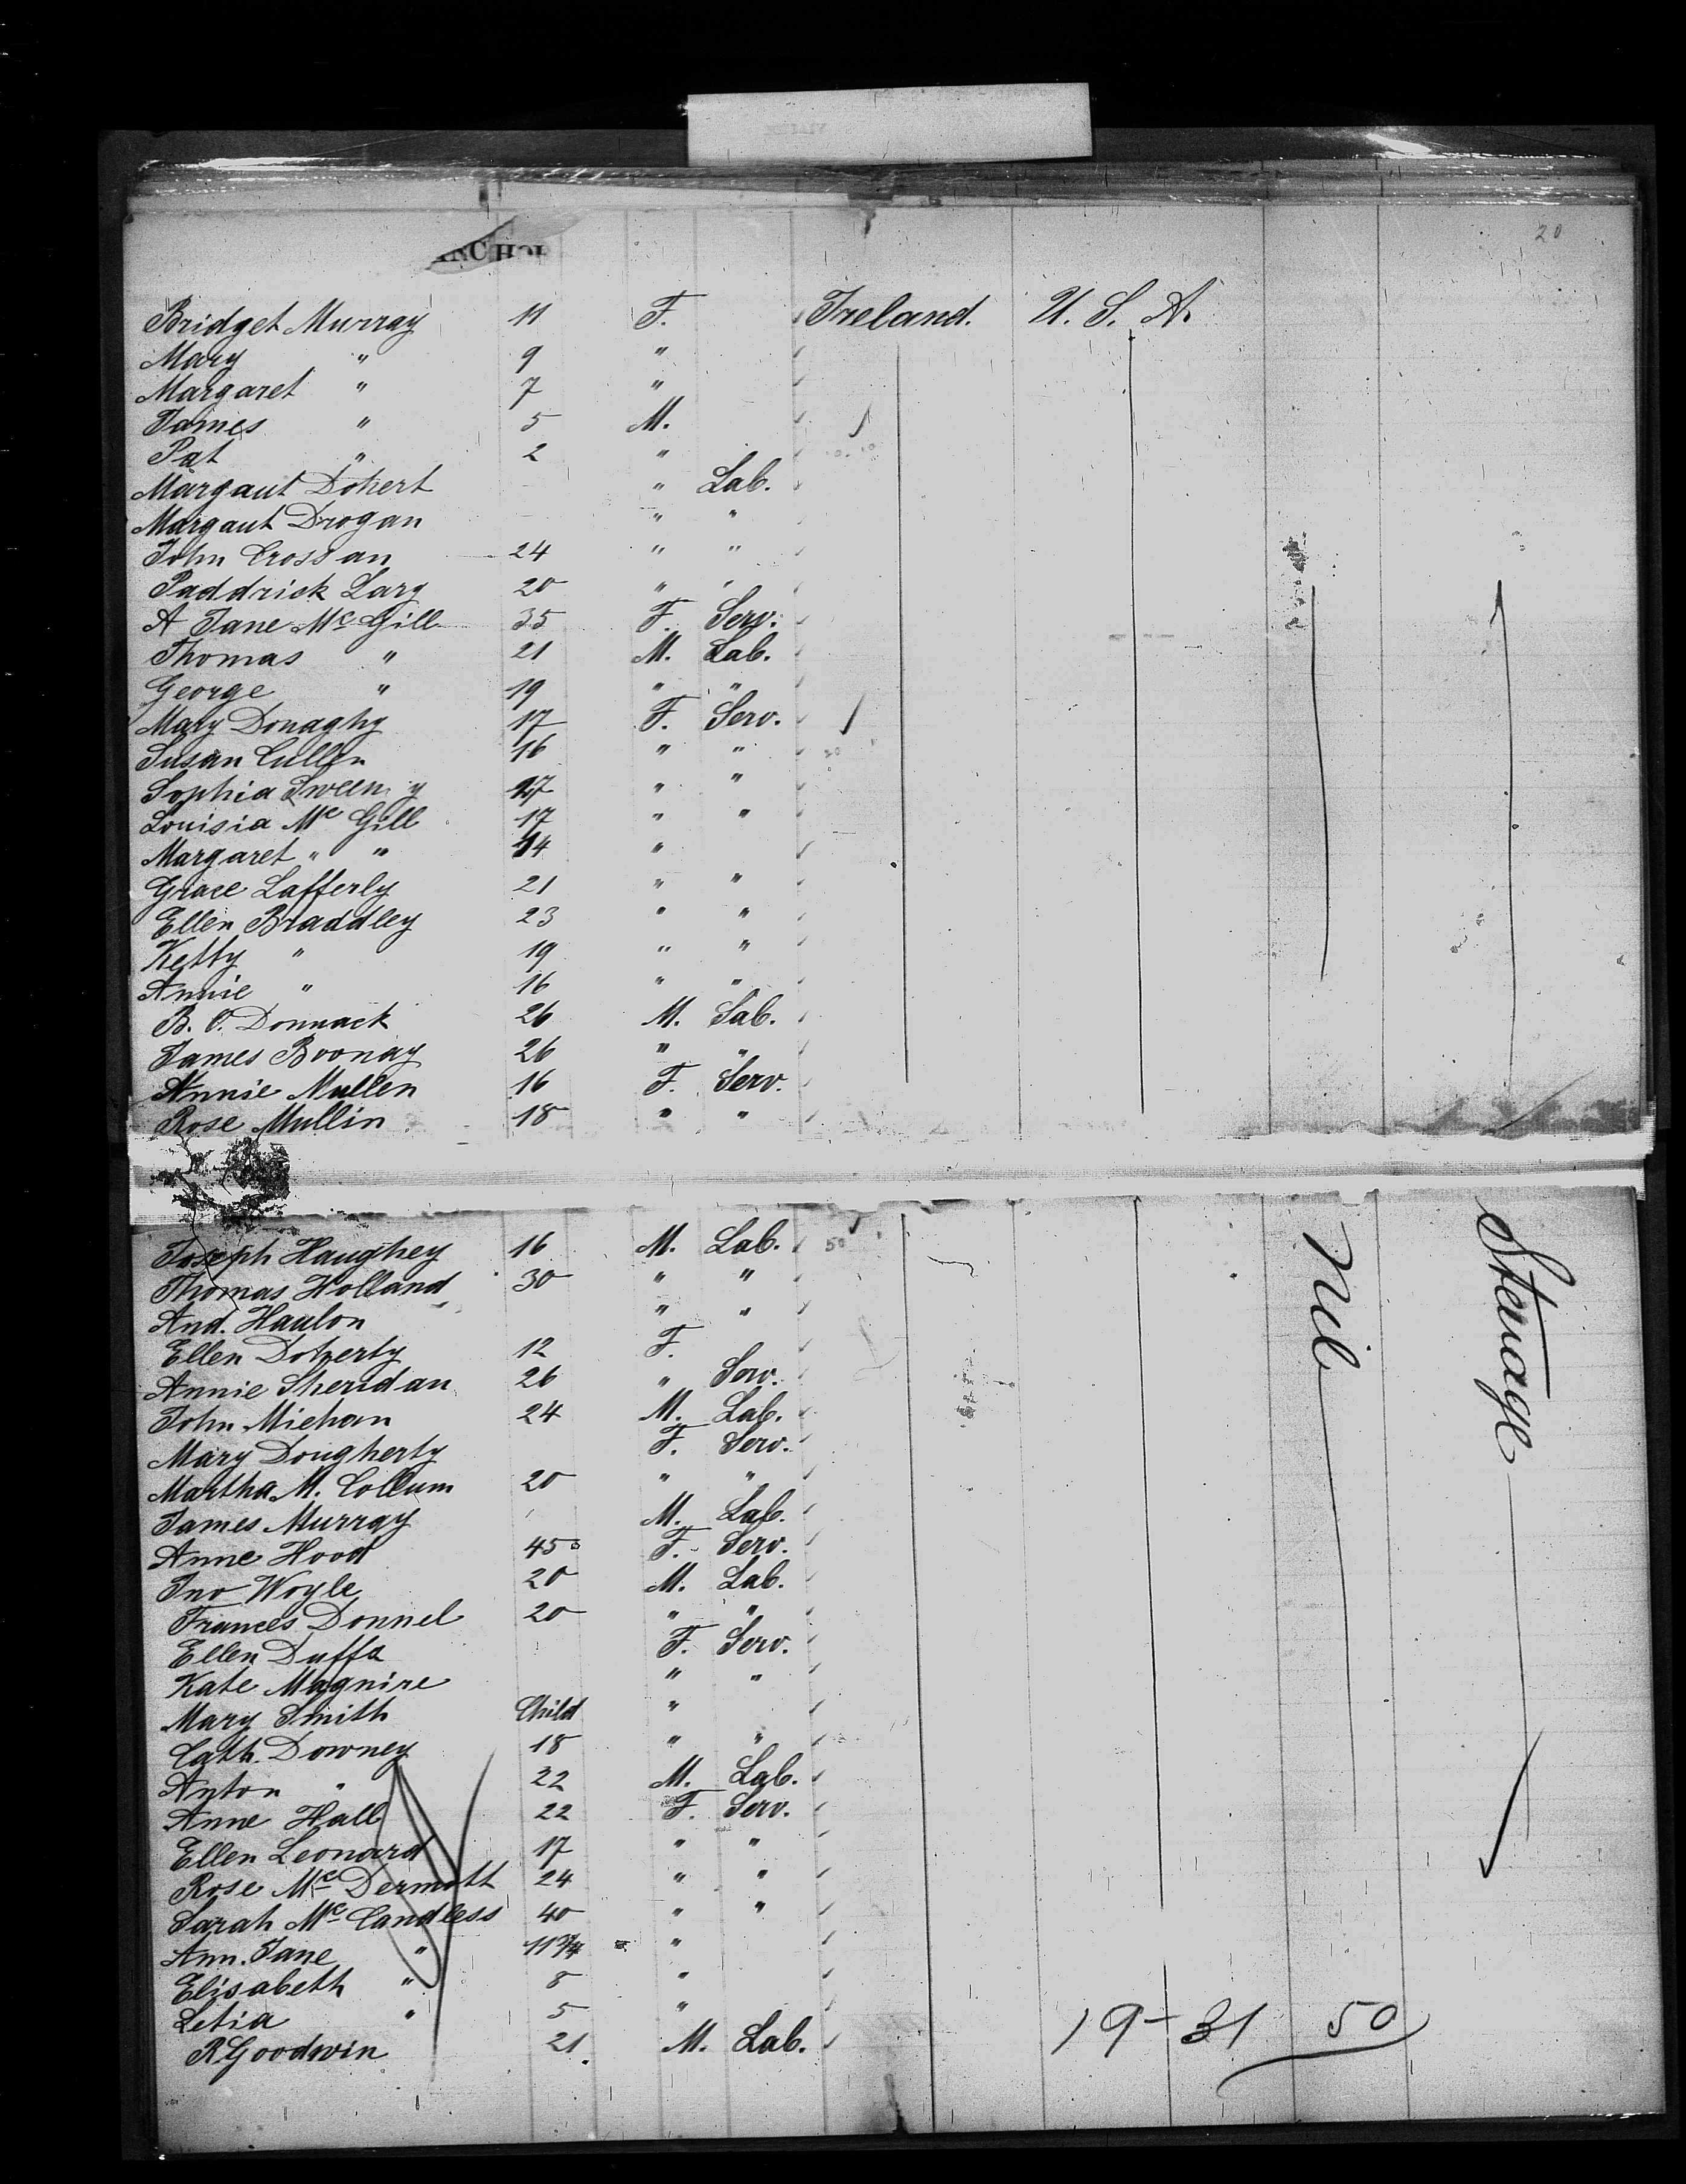 20
Bridget Murray 11 F. Ireland. U. S. A.
Mary " 9 "
Margaret " 7 "
James " 5 M.
Pat " 2 "
Margaut Dohert " Lab.
Margaut Drogan " "
John Crossan 24 " "
Paddrick Larg 20 " "
A Jane Mc Gill 35 F. Serv.
Thomas " 21 M. Lab.
George " 19 " "
Mary Donaghy 17 F. Serv.
Susan Cullen 16 " "
Sophia Sweeny 17 " "
Louisia Mc Gill 17 " "
Margaret " " 14 "
Grace Lafferly 21 " "
Ellen Braddley 23 " "
Ketty " 19 " "
Annie " 16 " "
B. O. Donnack 26 M. Lab.
James Boonay 26 " "
Annie Mullen 16 F. Serv.
Rose Mullin 18 " "
Joseph Haughey 16 M. Lab. 50 Nil Steerage
Thomas Holland 30 " "
And. Haulon " "
Ellen Doherty 12 F.
Annie Sheridan 26 " Serv.
John Miehan 24 M. Lab.
Mary Dougherty F. Serv.
Martha M. Collum 20 " "
James Murray M. Lab.
Anne Hood 45 F. Serv.
Jno Woyle 20 M. Lab.
Frances Donnel 20 " "
Ellen Duffs F. Serv.
Kate Magnire " "
Mary Smith Child "
Cath. Downey 18 " "
Anton " 22 M. Lab.
Anne Hall 22 F. Serv.
Ellen Leonard 17 " "
Rose Mc Dermott 24 " "
Sarah Mc Candless 40 " "
Ann. Jane " 11 3/4 "
Elisabeth " 8 "
Letia " 5 "
R Goodwin 21 M. Lab.
19-31 50